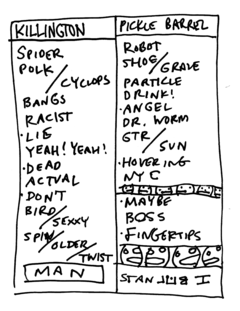 KILLINGTON
SPIDER
POLK/
CYCLOPS
BANGS
RACIST
·LIE
YEAH! YEAH!
·DEAD
ACTUAL
·DON'T
BIRD/
SEXXY
SPIN/
OLDER/
TWIST
MAN
PICKLE BARREL
ROBOT
SHOE/
GRAVE
PARTICLE
DRINK!
·ANGEL
DR. WORM
STR/
SUN
·HOVERING
NYC
·MAYBE
BOSS
·FINGERTIPS